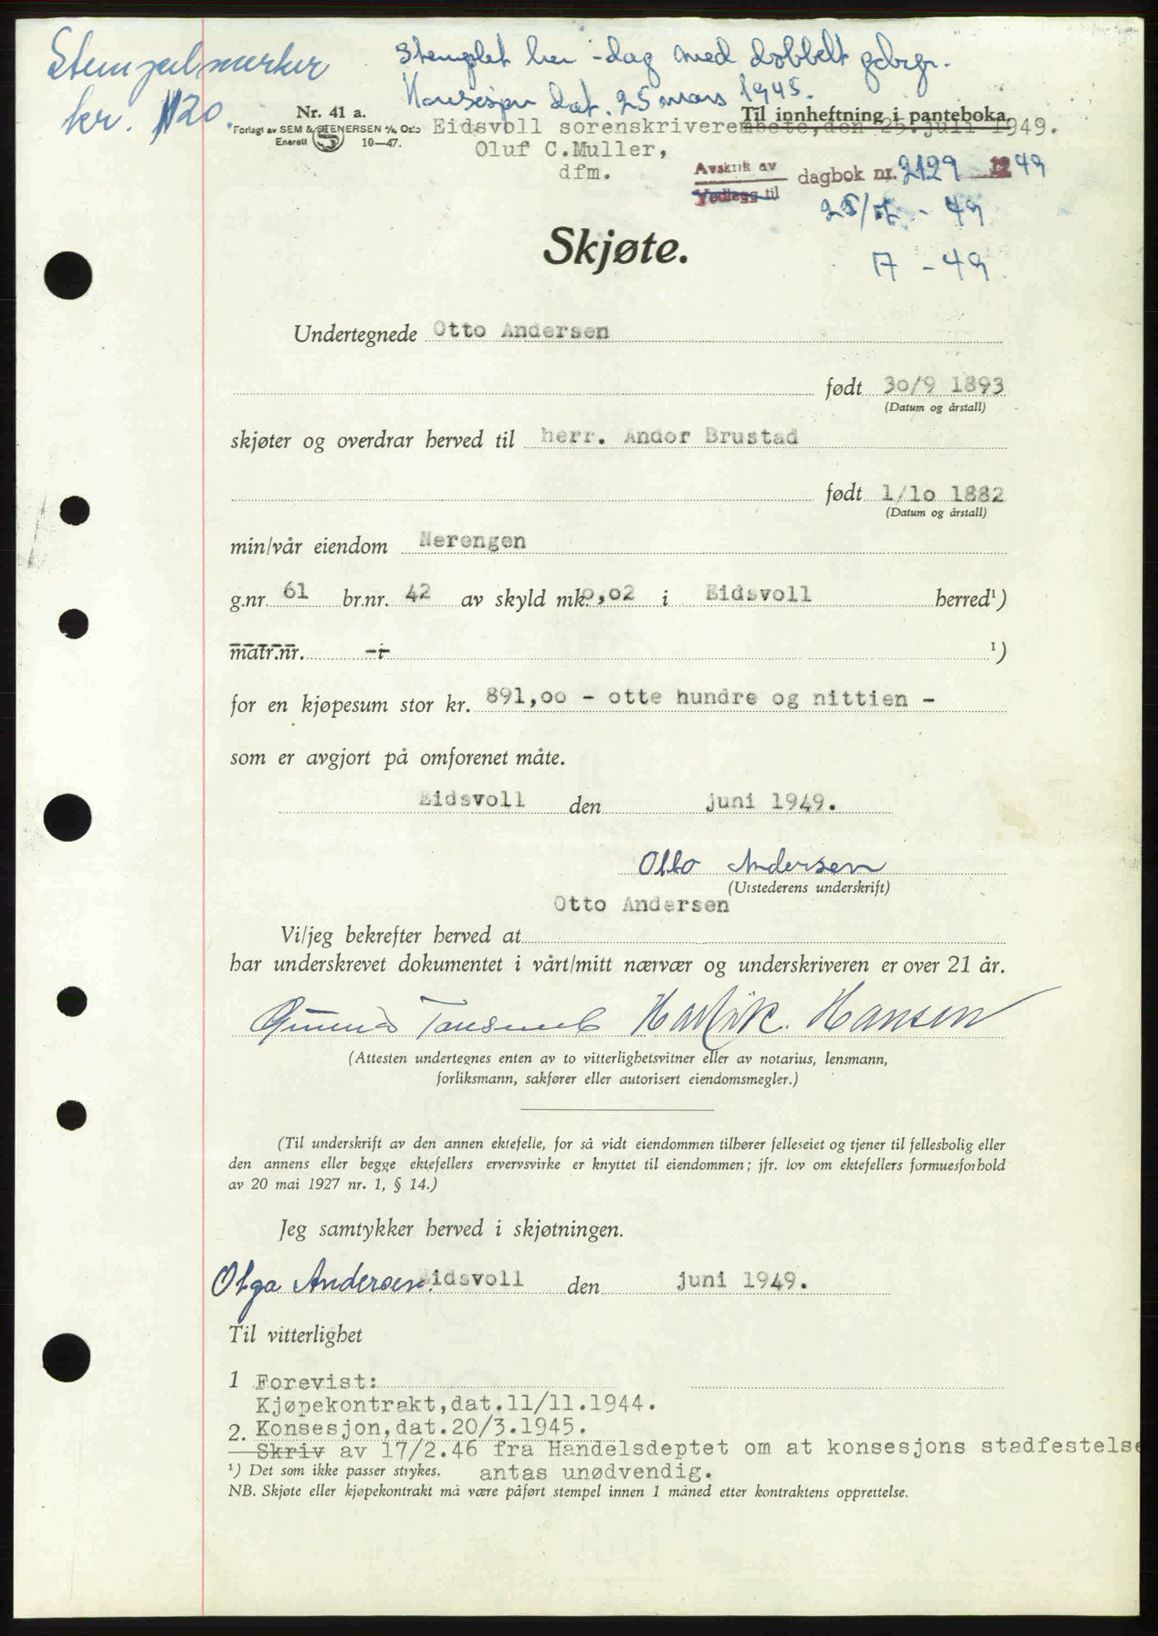 Stempelmerker
kr. 120.
Stemplet her i dag med dobbelt gebyr.
Konsesjon dat. 25 mars 1945.
Nr. 41 a.
Forlagt av SEM & STENERSEN A/S, Oslo
Enerett 10—47.
Til innheftning i panteboka.
Eidsvoll sorenskriverembete, den 25. juli 1949.
Oluf C.Muller,
dfm.
Avskrift av
Vedlegg til
dagbok nr. 2129 1949
25/7 - 49
A - 49
Skjøte.
Undertegnede Otto Andersen
født 30/9 1893
(Datum og årstall)
skjøter og overdrar herved til herr. Andor Brustad
født 1/10 1882
(Datum og årstall)
min/vår eiendom Nerengen
g.nr. 61 br.nr. 42 av skyld mk. 0,02 i Eidsvoll herred¹)
matr.nr. ¹)
for en kjøpesum stor kr. 891,00 - otte hundre og nittien -
som er avgjort på omforenet måte.
Eidsvoll den juni 1949.
Otto Andersen
(Utstederens underskrift)
Otto Andersen
Vi/jeg bekrefter herved at
har underskrevet dokumentet i vårt/mitt nærvær og underskriveren er over 21 år.
Hansen
(Attesten undertegnes enten av to vitterlighetsvitner eller av notarius, lensmann,
forliksmann, sakfører eller autorisert eiendomsmegler.)
(Til underskrift av den annen ektefelle, for så vidt eiendommen tilhører felleseiet og tjener til fellesbolig eller
den annens eller begge ektefellers ervervsvirke er knyttet til eiendommen; jfr. lov om ektefellers formuesforhold
av 20 mai 1927 nr. 1, § 14.)
Jeg samtykker herved i skjøtningen.
Olga Andersen. Eidsvoll den juni 1949.
Til vitterlighet
1 Forevist:
Kjøpekontrakt, dat. 11/11.1944.
2. Konsesjon, dat. 20/3.1945.
Skriv av 17/2.46 fra Handelsdeptet om at konsesjons stadfestelse
¹) Det som ikke passer strykes. antas unødvendig.
NB. Skjøte eller kjøpekontrakt må være påført stempel innen 1 måned etter kontraktens opprettelse.